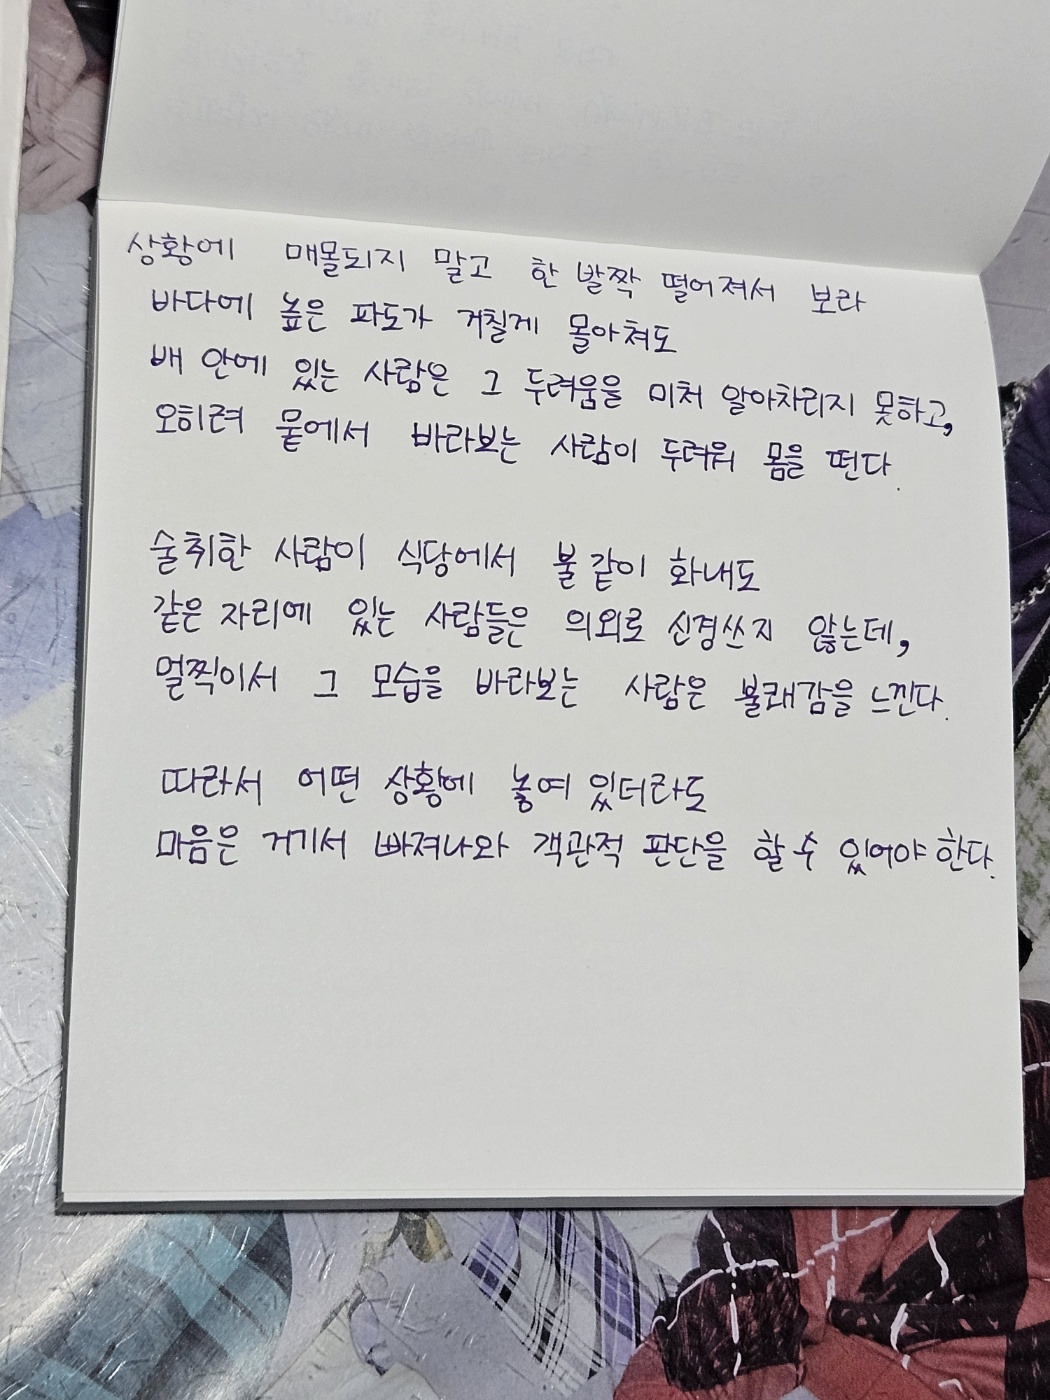 상황에 매몰되지 말고 한 발짝 떨어져서 보라
바다에 높은 파도가 거칠게 몰아쳐도
배 안에 있는 사람은 그 두려움을 미처 알아차리지 못하고,
오히려 뭍에서 바라보는 사람이 두려워 몸을 떤다.
술취한 사람이 식당에서 불같이 화내도
같은 자리에 있는 사람들은 의외로 신경쓰지 않는데,
멀찍이서 그 모습을 바라보는 사람은 불쾌감을 느낀다.
따라서 어떤 상황에 놓여 있더라도
마음은 거기서 빠져나와 객관적 판단을 할 수 있어야 한다.